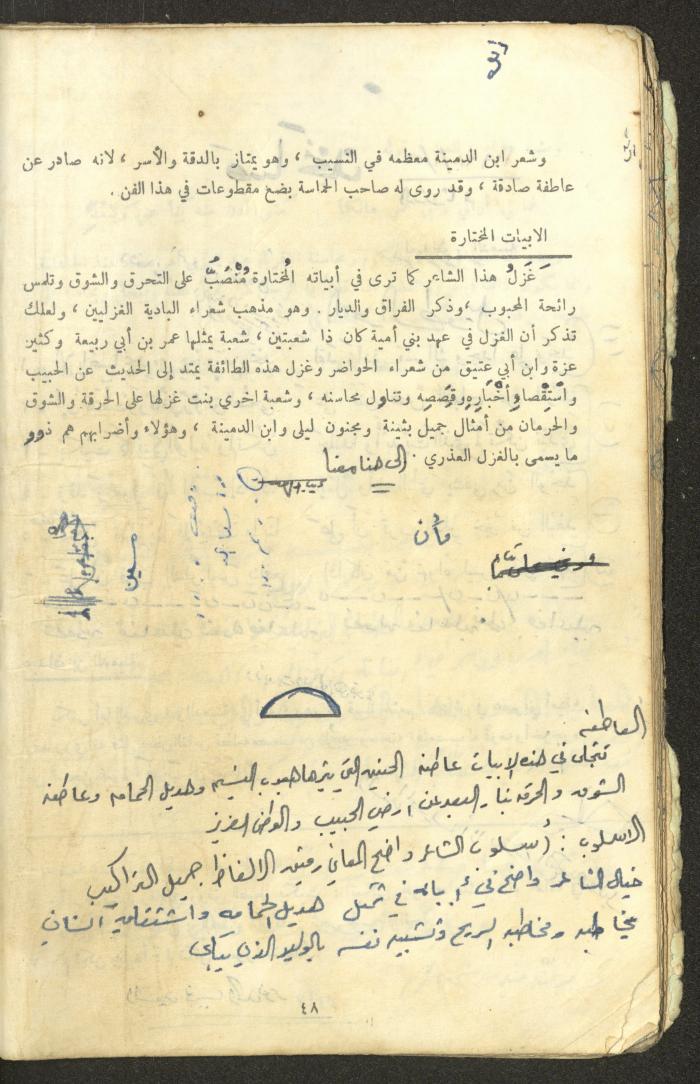 وشعر ابن الدمينة معظمه في النسيب ، وهو يمتاز بالدقة والأسر ، لانه صادر عن
عاطفة صادقة ، وقد روى له صاحب الحماسة بضع مقطوعات في هذا الفن .
الابيات المختارة
غَزَلُ هذا الشاعر كما ترى في أبياته المُختارة مُنْصَبٌّ على التحرق والشوق وتلمس
رائحة المحبوب ، وذكر الفراق والديار . وهو مذهب شعراء البادية الغزليين ، ولعلك
تذكر أن الغزل في عهد بني أمية كان ذا شعبتين ، شعبة يمثلها عمر بن أبي ربيعة وكثير
عزة وابن أبي عتيق من شعراء الحواضر وغزل هذه الطائفة يمتد إلى الحديث عن الحبيب
واسْتِقْصاءِ أخْبَارِهِ وقَصَصِهِ وتناول محاسنه ، وشعبة اخري بنت غزلها على الحرقة والشوق
والحرمان من أمثال جميل بثينة ومجنون ليلى وابن الدمينة ، وهؤلاء وأضرابهم هم ذوو
ما يسمى بالغزل العذري . إلى هنا معنا
وأن
حسين
العاطفه
تتجلى في هذه الابيات عاطفة الحنين التي يثيرها هبوب النسيم وهديل الحمامه وعاطفة
الشوق والحرقة بنار البعد عن ارض الحبيب والوطن العزيز
الاسلوب : أسلوب الشاعر واضح المعاني رقيق الالفاظ جميل التراكيب
خيال الشاعر واضح في أبياته في تمثل هديل الحمامه
مخاطبه ومخاطبه الريح وتشبيه نفسه بالوليد الذي يبكي
٤٨